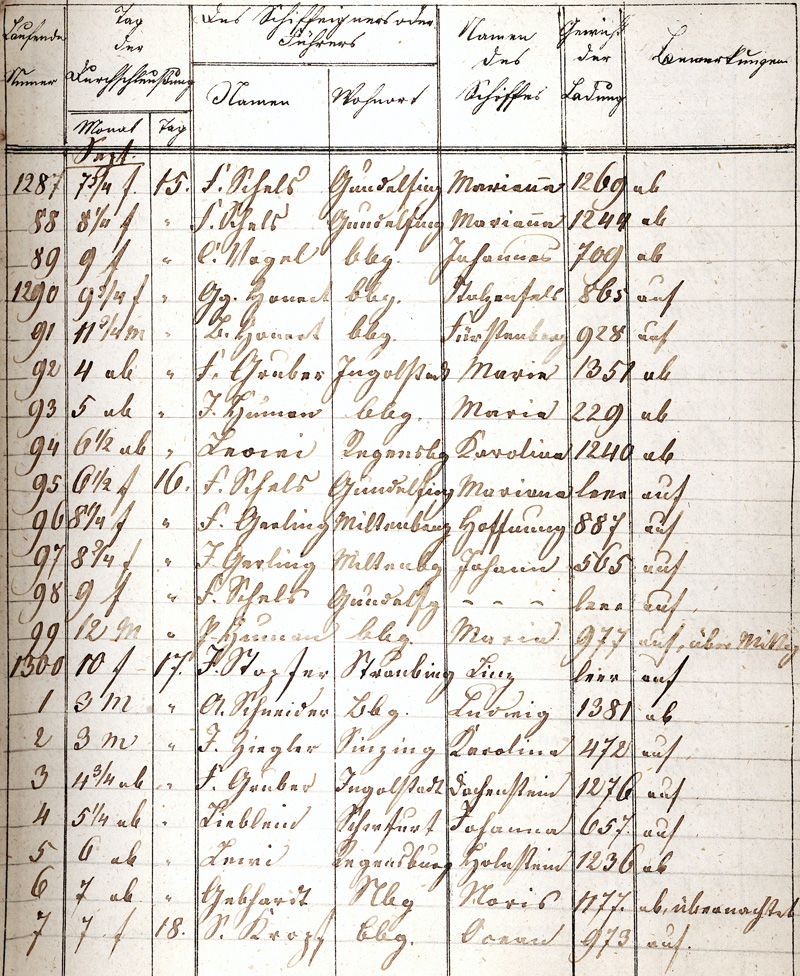 Laufende Numer
Tag der Durchschleußung
Des Schiffeigners oder Führers
Namen des Schiffes
Gewicht der Ladung
Bemerkungen
Monat Tag Namen Wohnort
Sept.
1287 7 3/4 f 15. F. Schels Gundelfing Marianna 1269 ab
88 8 1/4 f " F. Schels Gundelfing Marianna 1244 ab
89 9 f " C. Vogel bbg. Johannes 709 ab
1290 9 3/4 f " Gg. Honert bbg. Stolzenfels 865 auf
91 11 3/4 m " B. Honert bbg. Fürstenberg 928 auf
92 4 ab " F. Gruber Ingolstadt Maria 1351 ab
93 5 ab " J. Human bbg. Maria 229 ab
94 6 1/2 ab " Regensbg Karolina 1240 ab
95 6 1/2 f 16. F. Schels Gundelfing Mariana leer auf
96 8 1/4 f " F. Gerling Miltenberg Hoffnung 887 auf
97 8 3/4 f " J. Gerling Miltenbg Johann 565 auf
98 9 f " F. Schels Gundelfg - - - leer auf.
99 12 M " P. Human bbg. Maria 977 auf, über Mittag
1300 10 f 17. J. Stopfer Straubing Linz leer auf
1 3 M " A. Schneider Bbg. Ludwig 1381 ab
2 3 M " J. Ziegler Sinzing Karolina 472 auf
3 4 3/4 ab " F. Gruber Ingolstadt 1276 auf
4 5 1/4 ab " Lieblein Schwfurt Johanna 657. auf
5 6 ab " Regensburg Holnstein 1236 ab
6 7 ab " Gebhardt Nbg Noris 1177. ab, übernachtet
7 7 f 18. S. Kropf bbg. Ocean 973 auf.